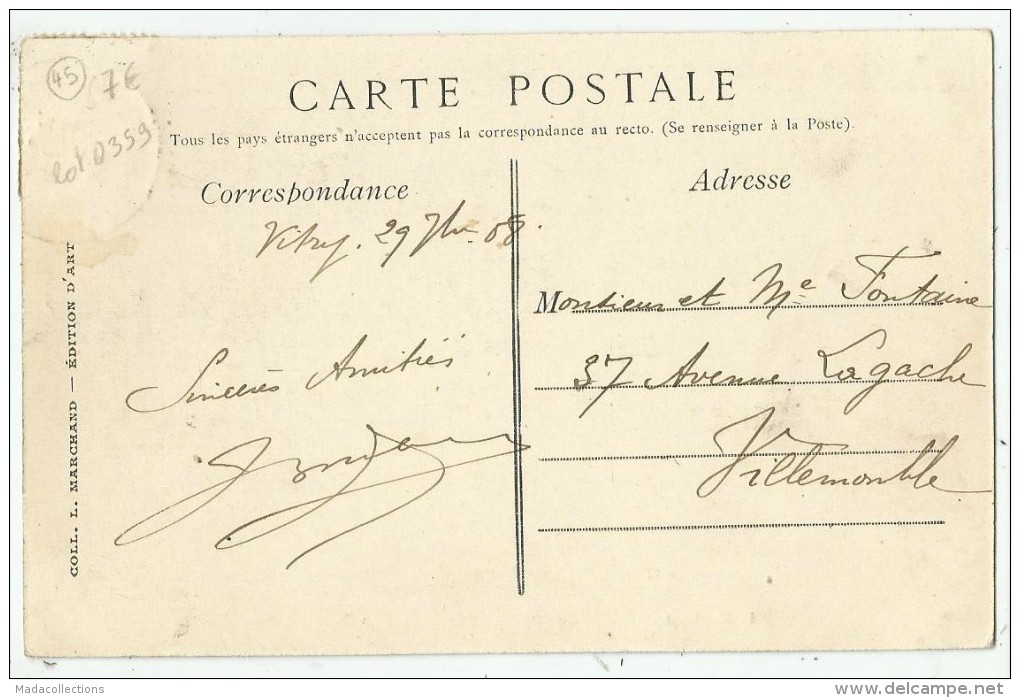 45
7€
CARTE POSTALE
Tous les pays étrangers n'acceptent pas la correspondance au recto. (Se renseigner à la Poste).
Correspondance
Vitry, 29 7bre 08.
Sincères Amitiés
Adresse
Monsieur et Me Fontaine
37 Avenue Lagache
Villemomble
COLL. L. MARCHAND — ÉDITION D'ART
Madacollections
www.delcampe.net